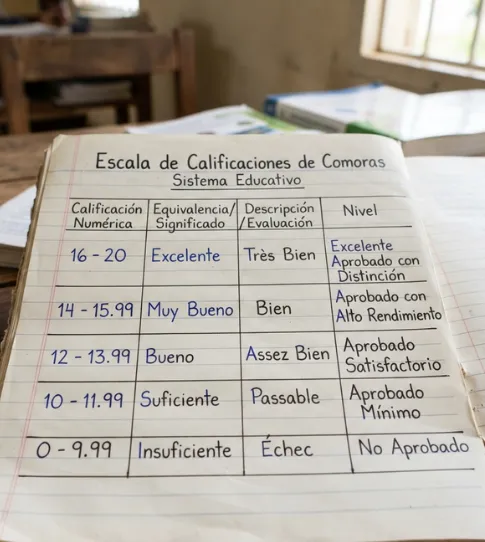 Escala de Calificaciones de Comoras
Sistema Educativo
Calificación Numérica | Equivalencia/ Significado | Descripción /Evaluación | Nivel
16 - 20 | Excelente | Très Bien | Excelente Aprobado con Distinción
14 - 15.99 | Muy Bueno | Bien | Aprobado con Alto Rendimiento
12 - 13.99 | Bueno | Assez Bien | Aprobado Satisfactorio
10 - 11.99 | Suficiente | Passable | Aprobado Mínimo
0 - 9.99 | Insuficiente | Échec | No Aprobado